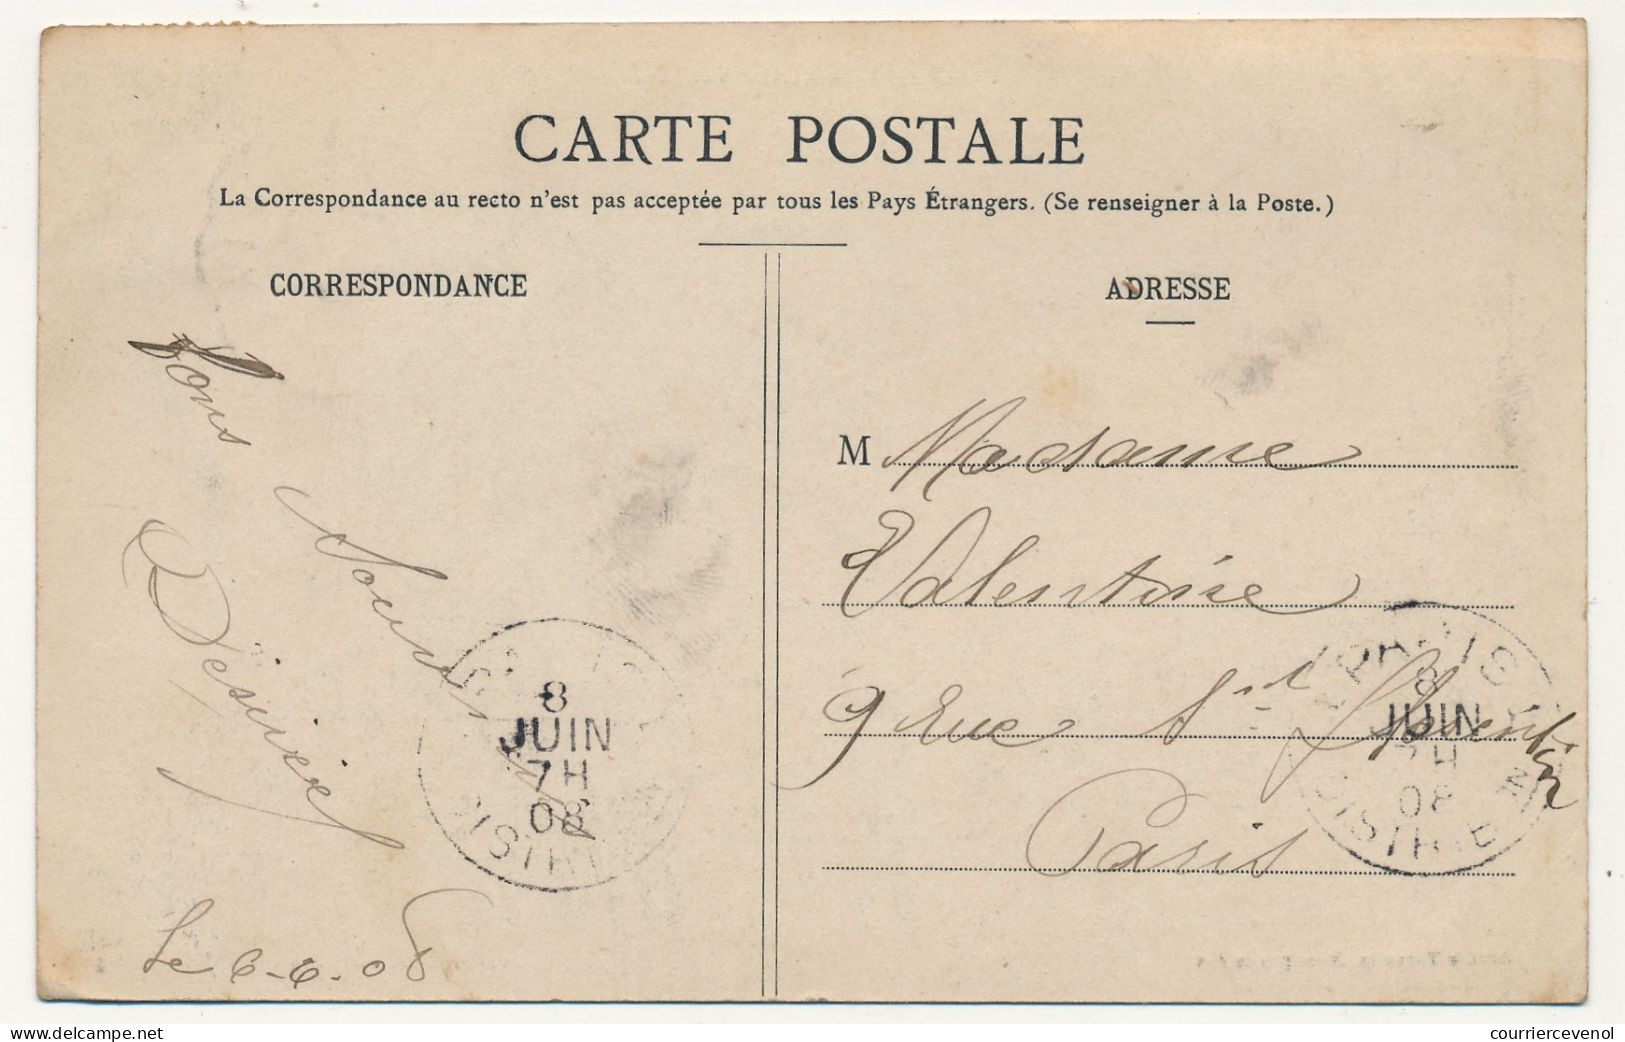 CARTE POSTALE
La Correspondance au recto n'est pas acceptée par tous les Pays Étrangers. (Se renseigner à la Poste.)
CORRESPONDANCE
ADRESSE
Bons
Souvenirs
Désirée
Le 6-6-08
8
JUIN
7H
08
M Madame
Valentine
9 rue St
Paris
8
JUIN
7H
08
DISTRIB
courriercevenol